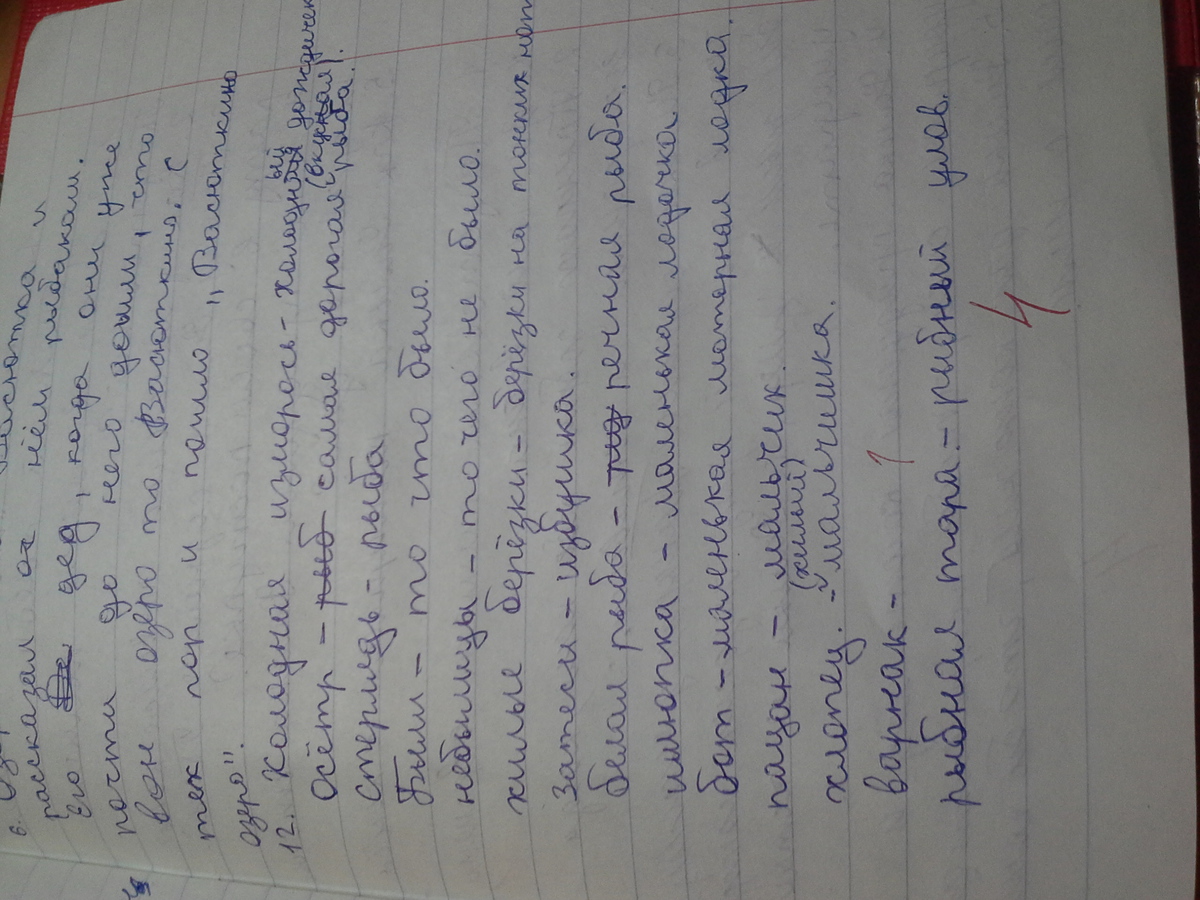 рассказал от нём рыбаком.
Его дед, когда они уже
почти до него дошли, что
вон озеро то Васюткино. С
тех пор и пошло "Васюткино
озеро".
12. Холодная изморось - холодный дождичек
Осётр - рыб самая дорогая (вкусная) рыба.
Стерлядь - рыба
Были - то что было.
небылицы - то чего не было.
хилые берёзки - берёзки на тонких
Затеси - избушка.
белая рыба - реч речная рыба.
илимка - маленькая лодочка.
бот - маленькая моторная лодка.
пацан - мальчик.
хлопец - (хилый) мальчишка.
варнак -
рыбная тара - рыбный улов.
4